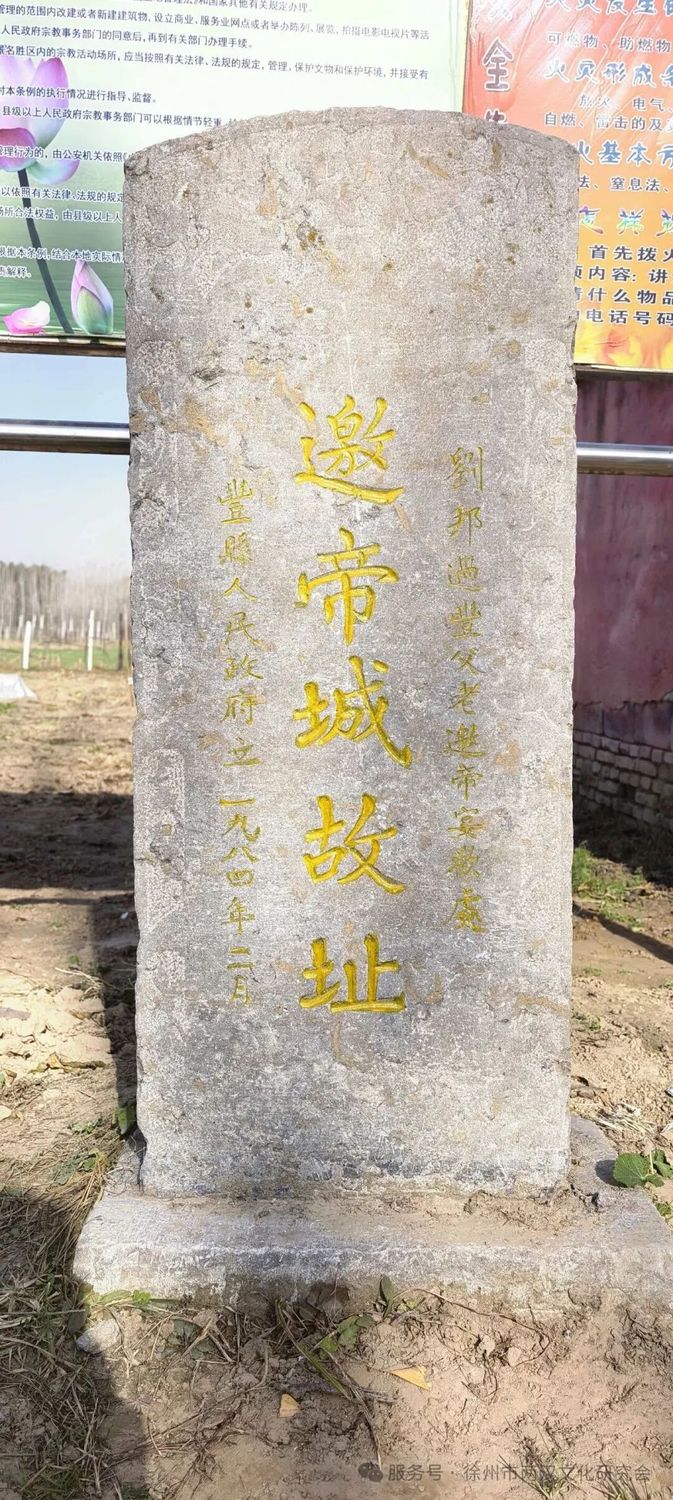 管理的范围内改建或者新建建筑物，设立商业、服业网点或者举办陈列、展览，拍摄电影电视片等活
人民政府宗教事务部门的同意后，再到有关部门办理手续。
景名胜区内的宗教活动场所，应当按照有关法律、法规的规定，管理、保护文物和保护环境，并接受有
对本条例的执行情况进行指导、监督。
县级以上人民政府宗教事务部门可以根据情节轻重
管理行为的，由公安机关依照
以依照有关法律、法规的规定
场所合法权益，由县级以上人
根据本条例，结合本地实际情
解释。
全
可燃物、助燃物
火灾形成条
放火、电气、
自燃、雷击的及
火基本方
法、窒息法、
怎样
首先拨火
内容：讲
什么物品
电话号码
劉邦過豐父老邀帝宴飲處
邀帝城故址
豐縣人民政府立 一九八四年二月
服务号 · 徐州市两汉文化研究会